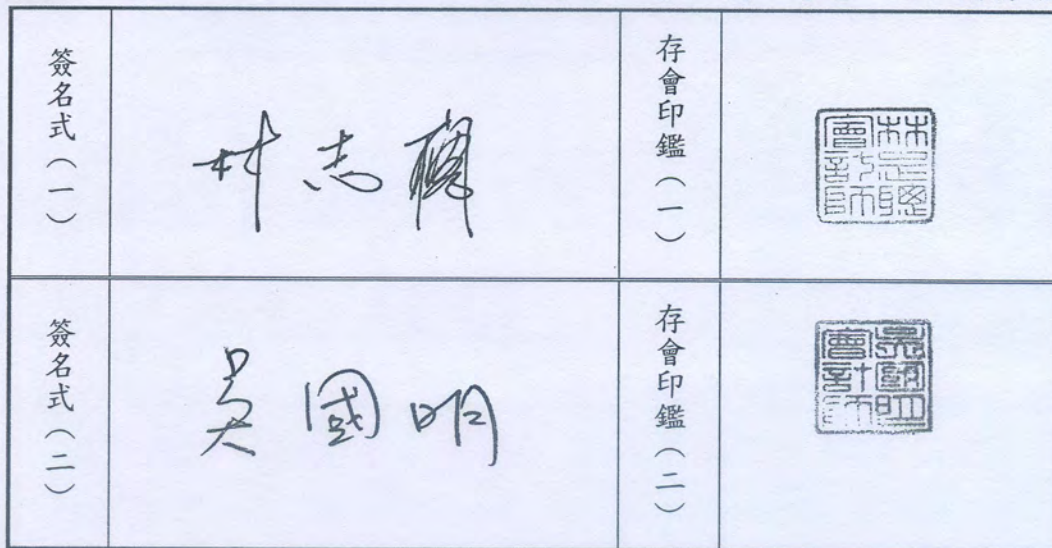 簽名式（一）
林志聰
存會印鑑（一）
林志聰
會計師
簽名式（二）
吳國明
存會印鑑（二）
吳國明
會計師